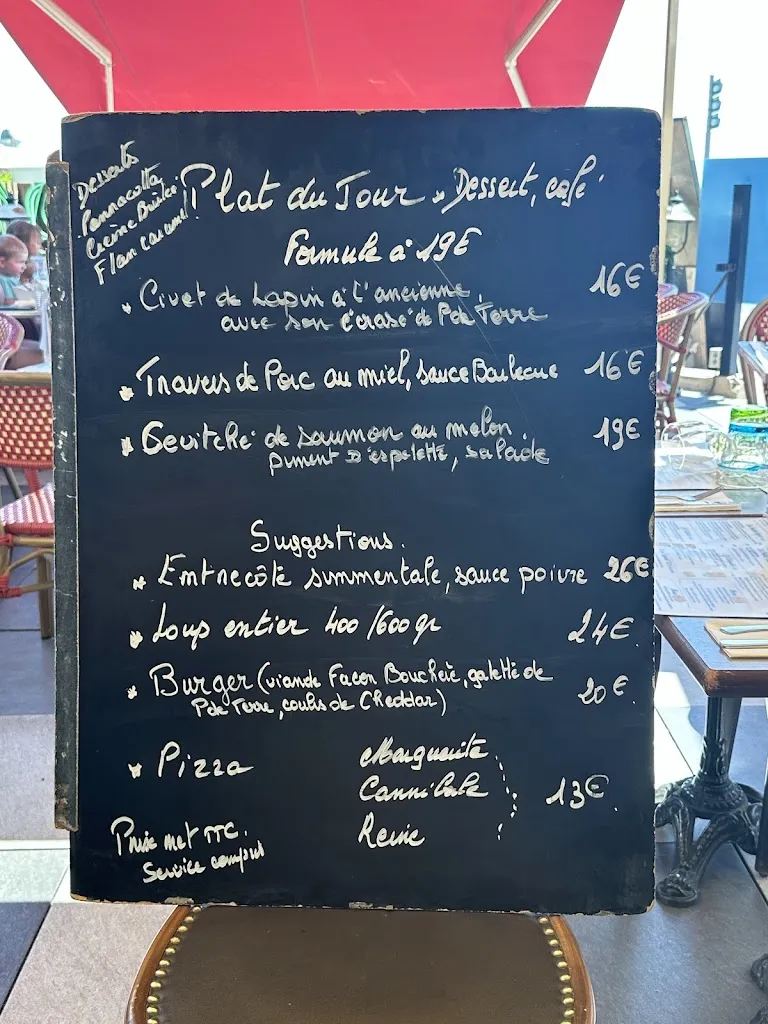 Desserts
Pannacotta
Crème Brûlée
Flan caramel
Plat du Jour + Dessert, café
Formule à 19€
* Civet de Lapin à l'ancienne, 16€
avec son écrasé de Pde Terre
* Travers de Porc au miel, sauce Barbecue 16€
* Cevitché de saumon au melon, 19€
piment d'espelette, salade
Suggestions.
* Entrecôte simmentale, sauce poivre 26€
* Loup entier 400/600gr 24€.
* Burger (viande Façon Bouchère, galette de 20€.
Pde Terre, coulis de Cheddar)
* Pizza Marguerite
Cannibale 13€.
Reine
Prix net TTC.
Service compris